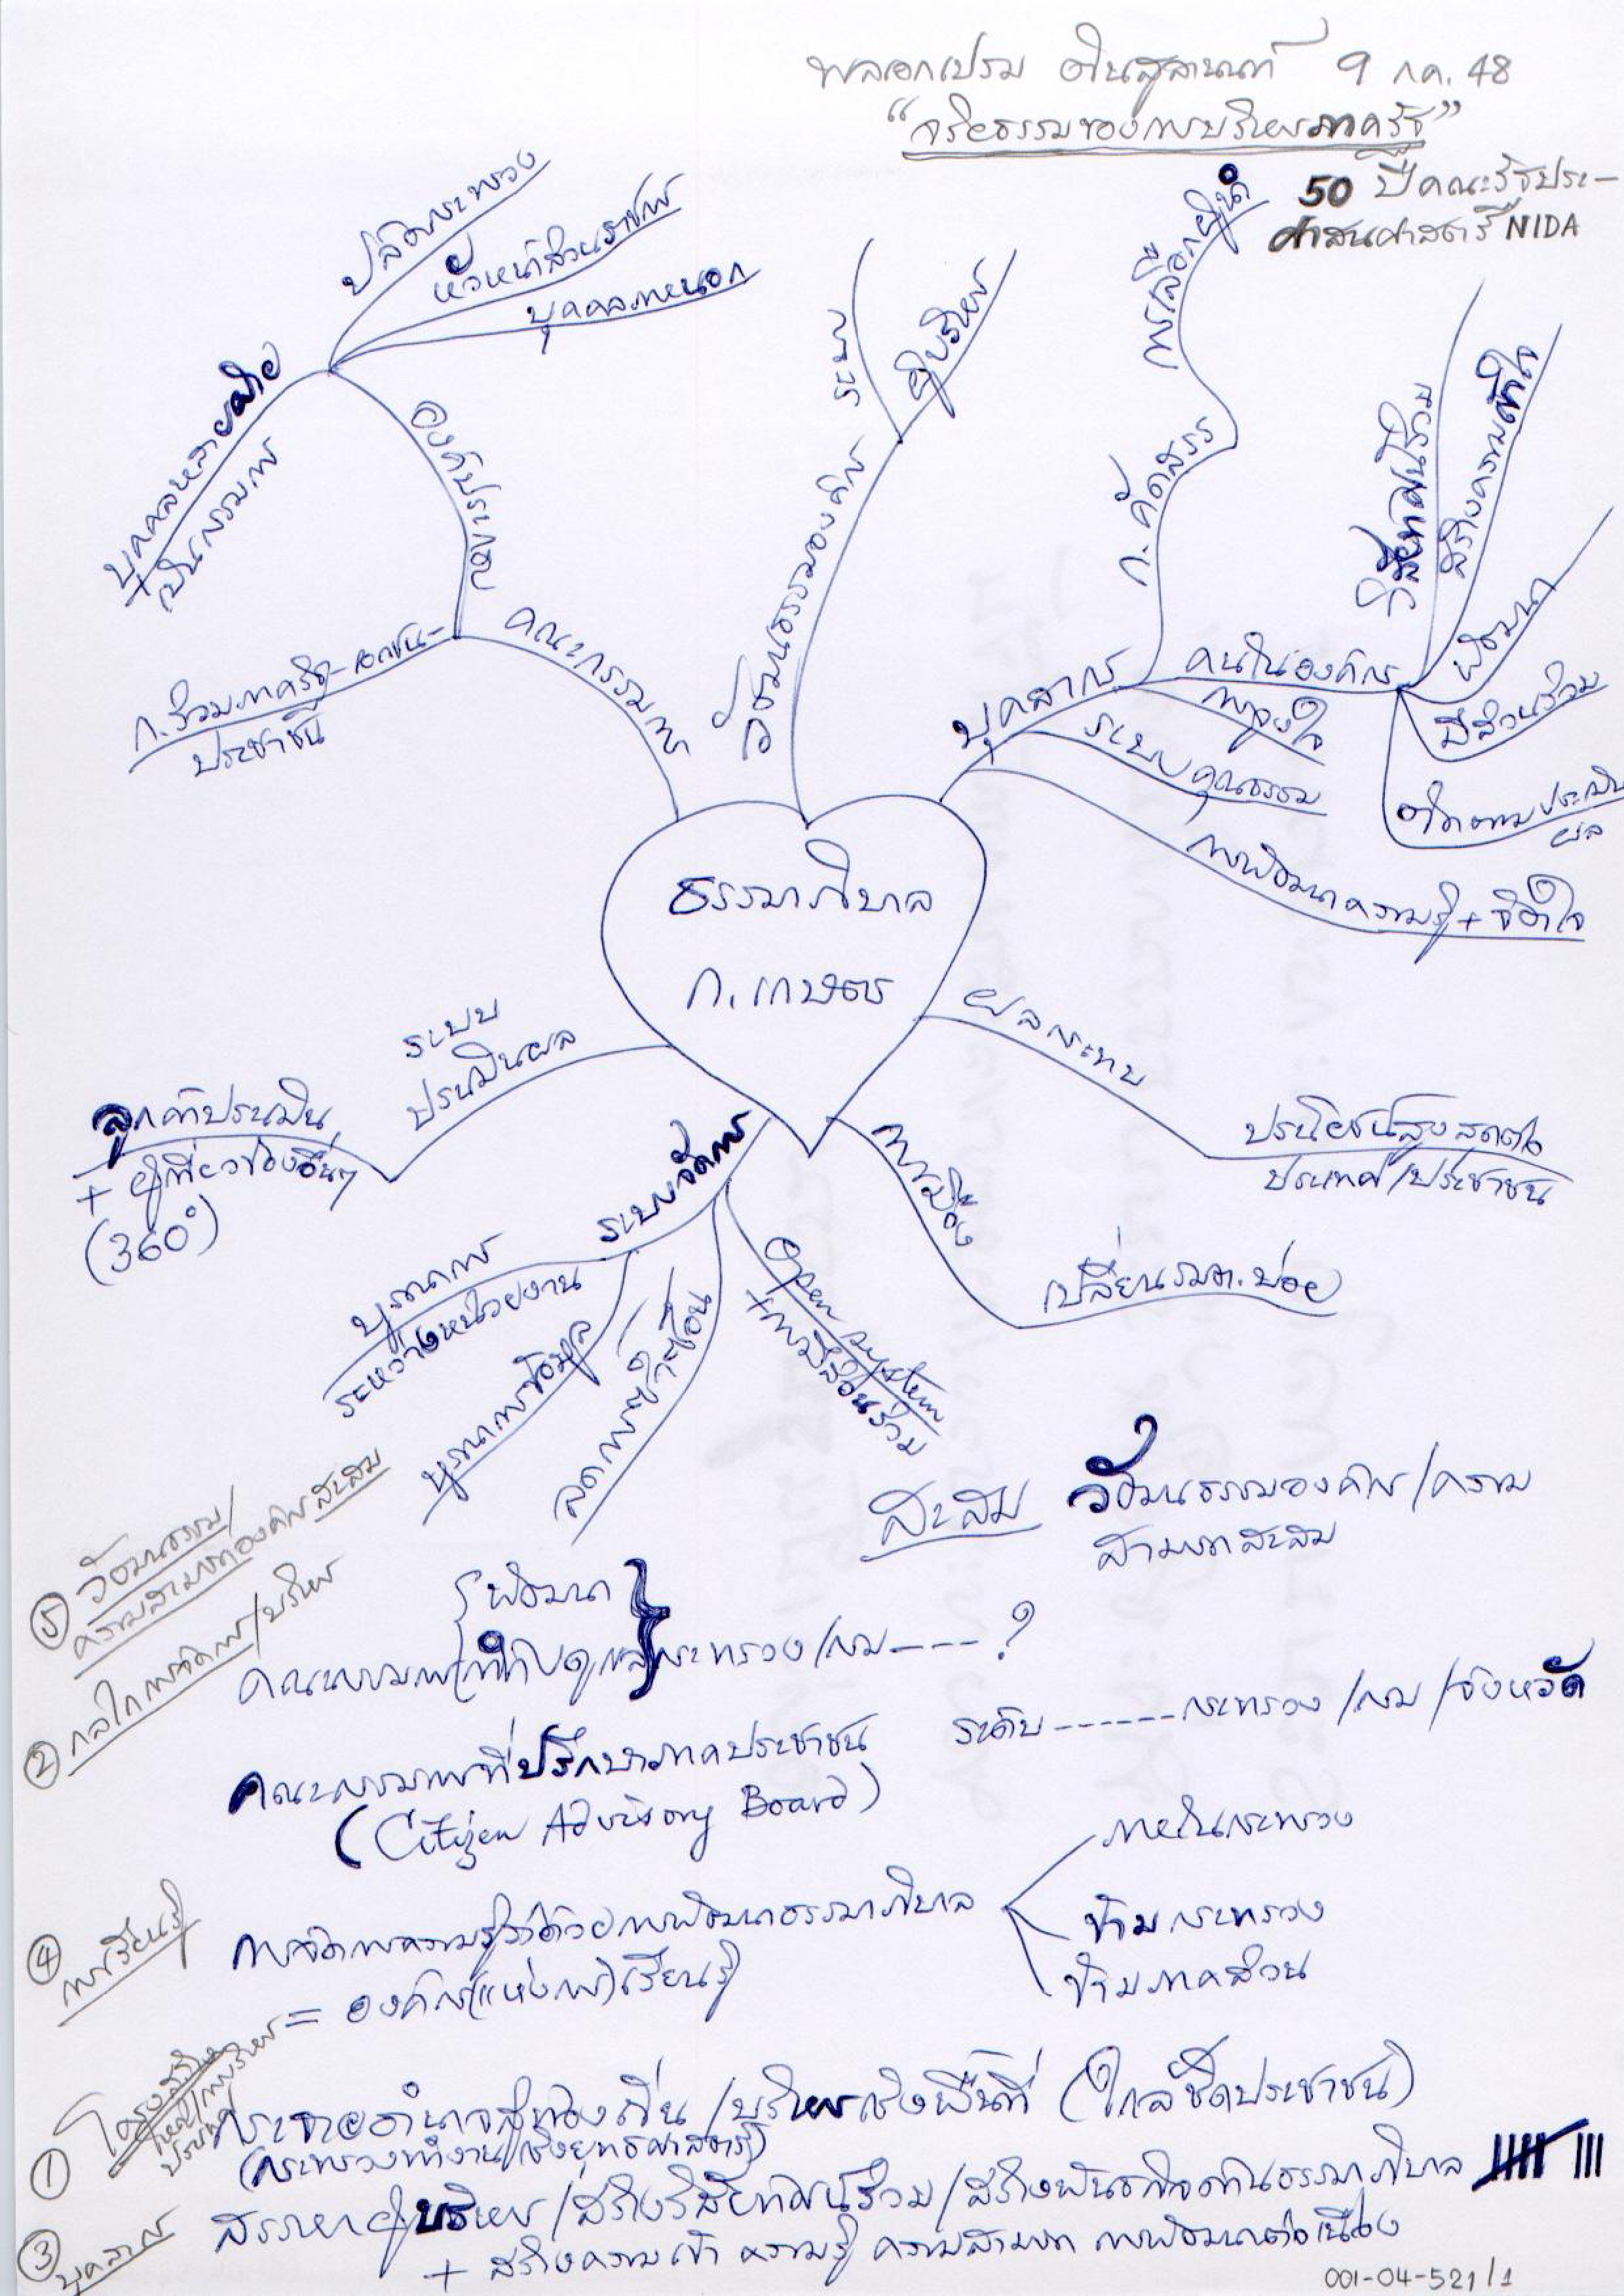 พลเอกเปรม ติณสูลานนท์ 9 กค. 48
“จริยธรรมของการบริหารภาครัฐ”
50 ปี คณะรัฐประ-
ศาสนศาสตร์ NIDA
ปลัดกระทรวง
หัวหน้าส่วนราชการ
บุคคลภายนอก
บุคคลหลายฝ่าย
เป็นกรรมการ
องค์ประกอบ
ก.ร่วมภาครัฐ-เอกชน-
ประชาชน
คณะกรรมการ
วัฒนธรรมองค์กร
ระบบ
ผู้บริหาร
บุคลากร
ก.คัดสรร
การเลือกผู้นำ
คนในองค์กร
วิสัยทัศน์ร่วม
สร้างความเข้าใจ
พัฒนา
มีส่วนร่วม
ติดตามประเมิน
ผล
การจูงใจ
ระบบคุณธรรม
การพัฒนาความรู้ + จิตใจ
ธรรมาภิบาล
ก.เกษตร
ผลกระทบ
ประโยชน์สูงสุดต่อ
ประเทศ/ประชาชน
การเมือง
เปลี่ยนรมต.บ่อย
ระบบ
ประเมินผล
ลูกค้าประเมิน
+ ผู้เกี่ยวข้องอื่นๆ
(360°)
ระบบจัดการ
บูรณาการ
ระหว่างหน่วยงาน
บูรณาการข้อมูล
ลดการซ้ำซ้อน
Open system
+ การมีส่วนร่วม
สะสม วัฒนธรรมองค์กร/ความ
สามารถสะสม
⑤ วัฒนธรรม/
ความสามารถองค์กรสะสม
② กลไกการจัดการ/บริหาร
พัฒนา
คณะกรรมการกำกับดูแลกระทรวง/กรม----?
คณะกรรมการที่ปรึกษาภาคประชาชน
(Citizen Advisory Board)
ระดับ------กระทรวง/กรม/จังหวัด
④ การเรียนรู้
การจัดการความรู้ว่าด้วยการพัฒนาธรรมาภิบาล
= องค์กร(แห่งการ)เรียนรู้
ภายในกระทรวง
ข้ามกระทรวง
ข้ามภาคส่วน
① โครงสร้าง
กระจายอำนาจสู่ท้องถิ่น/บริหารเชิงพื้นที่ (ใกล้ชิดประชาชน)
(กระทรวงทำงานเชิงยุทธศาสตร์)
③ บุคลากร
สรรหาผู้บริหาร/สร้างวิสัยทัศน์ร่วม/สร้างพันธกิจด้านธรรมาภิบาล
+ สร้างความเข้า ความรู้ ความสามารถ การพัฒนาต่อเนื่อง
001-04-521/1